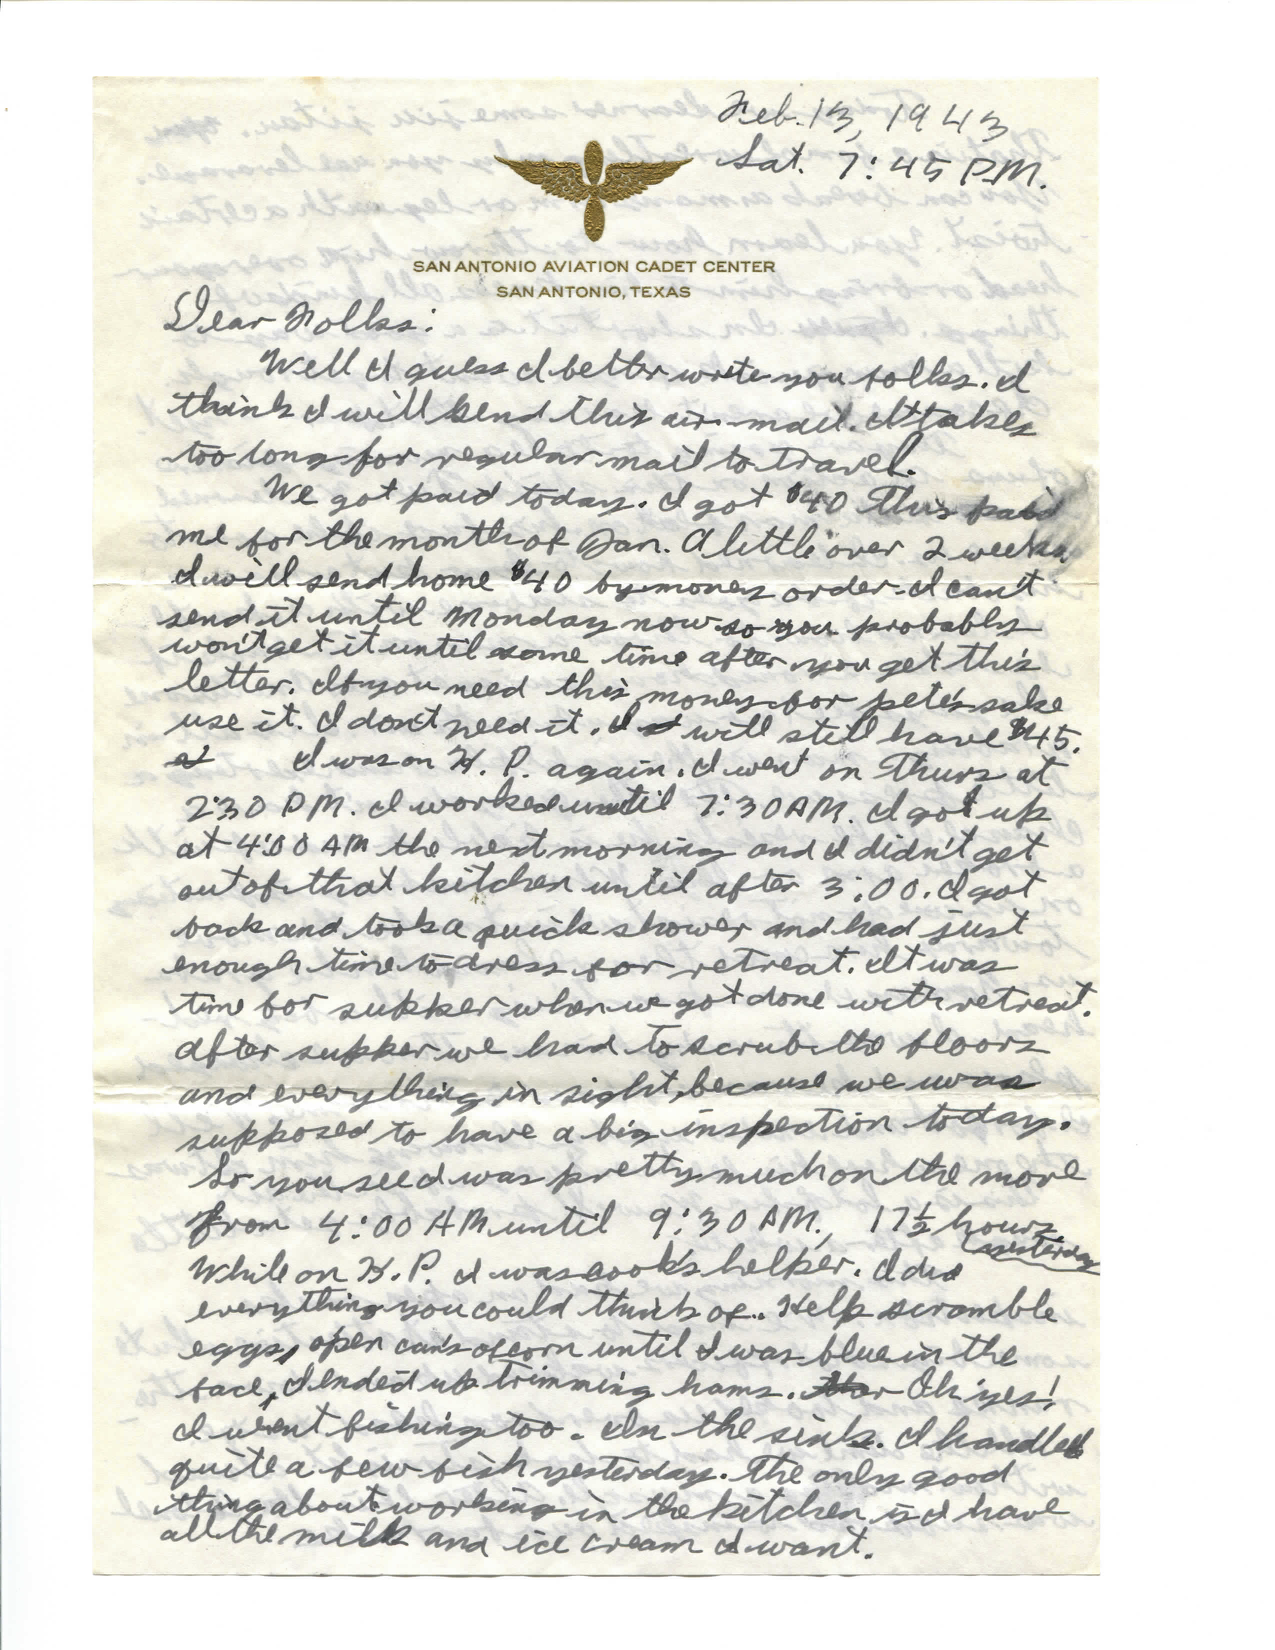 Feb. 13, 1943
Sat. 7:45 P.M.
SAN ANTONIO AVIATION CADET CENTER
SAN ANTONIO, TEXAS
Dear Folks:
Well I guess I better write you folks. I
think I will send this air-mail. It takes
too long for regular mail to travel.
We got paid today. I got $40 This paid
me for the month of Jan. A little over 2 weeks.
I will send home $40 by money order. I can't
send it until Monday now so you probably
won't get it until some time after you get this
letter. If you need this money for pete's sake
use it. I don't need it. I will still have $45.
I was on K. P. again. I went on Thurs at
2:30 PM. I worked until 7:30 AM. I got up
at 4:00 AM the next morning and I didn't get
out of that kitchen until after 3:00. I got
back and took a quick shower and had just
enough time to dress for retreat. It was
time for supper when we got done with retreat.
After supper we had to scrub the floors
and everything in sight, because we was
supposed to have a big inspection today.
So you see I was pretty much on the move
from 4:00 AM until 9:30 PM., 17½ hours.
yesterday
While on K. P. I was cook's helper. I did
everything you could think of. Help scramble
eggs, open can's of corn until I was blue in the
face, I ended up trimming hams. Oh yes!
I went fishing too. In the sink. I handled
quite a few fish yesterday. The only good
thing about working in the kitchen is I have
all the milk and ice cream I want.